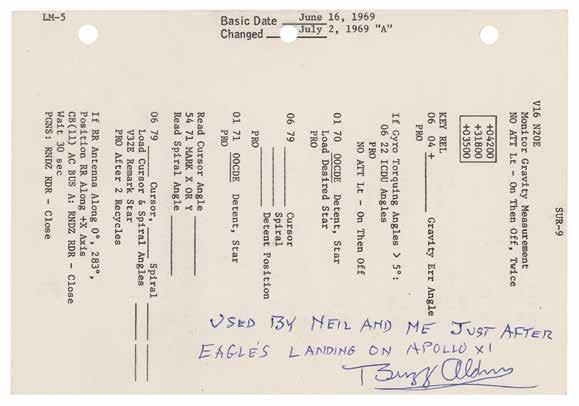 LM-5
Basic Date June 16, 1969
Changed July 2, 1969 "A"
SUR-9
V16 N20E
Monitor Gravity Measurement
NO ATT Lt - On Then Off, Twice
+04200
+31800
+03500
KEY REL
06 04 + Gravity Err Angle
PRO
If Gyro Torquing Angles > 5°:
06 22 ICDU Angles
PRO
NO ATT Lt - On Then Off
PRO
01 70 00CDE Detent, Star
Load Desired Star
PRO
06 79 Cursor
Spiral
Detent Position
PRO
01 71 00CDE Detent, Star
PRO
Read Cursor Angle
54 71 MARK X OR Y
Read Spiral Angle
06 79 Cursor, Spiral
Load Cursor & Spiral Angles
V32E Remark Star
PRO After 2 Recycles
If RR Antenna Along 0°, 283°,
Position RR Along +X Axis
CB(11) AC BUS A: RNDZ RDR - Close
Wait 30 sec
PGNS: RNDZ RDR - Close
USED BY NEIL AND ME JUST AFTER
EAGLE'S LANDING ON APOLLO XI
Buzz Aldrin